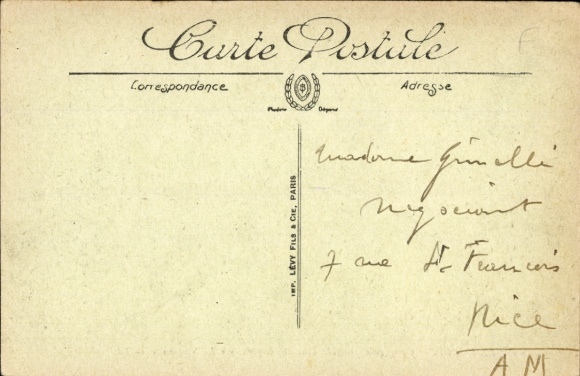 Carte Postale
Correspondance
Adresse
Modèle Déposé
IMP. LÉVY FILS & CIE, PARIS
Madame Gimelli
Négociant
7 rue St François
Nice
A M